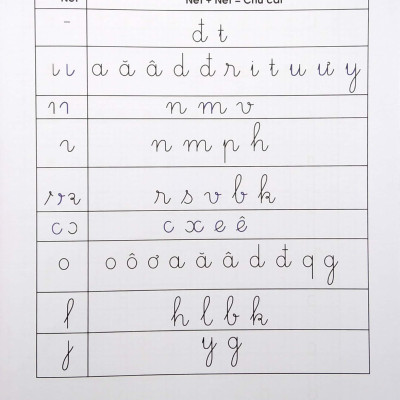 Nét Nét + Nét = Chữ cái
- đ t
ɩɩ a ă â d đ r i t u ư y
n m v
n m p h
r s v b k
c ɔ c x e ê
o o ô ơ a ă â d đ q g
l h l b k
j y g